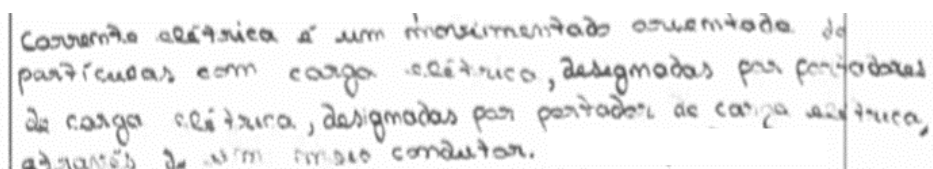 Corrente elétrica é um movimentado orientado de
partículas com carga elétrica, designadas por portadores
de carga elétrica, designadas por portador de carga elétrica,
através de um meio condutor.